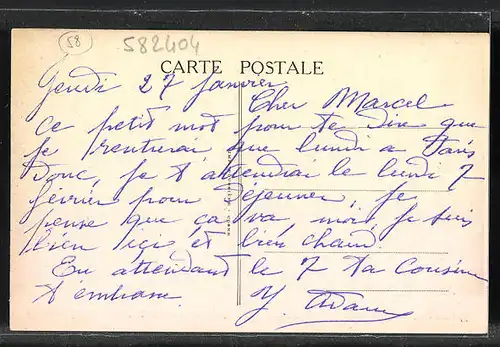 58
582404
CARTE POSTALE
Jeudi 27 janvier
Cher Marcel
ce petit mot pour te dire que
je rentrerai que lundi a Paris
Donc, je t'attendrai le lundi 7
février pour Déjeuner, je
pense que ça va, moi, je suis
bien ici et bien chaud.
En attendant le 7 ta Cousine
t'embrasse Y. Adam